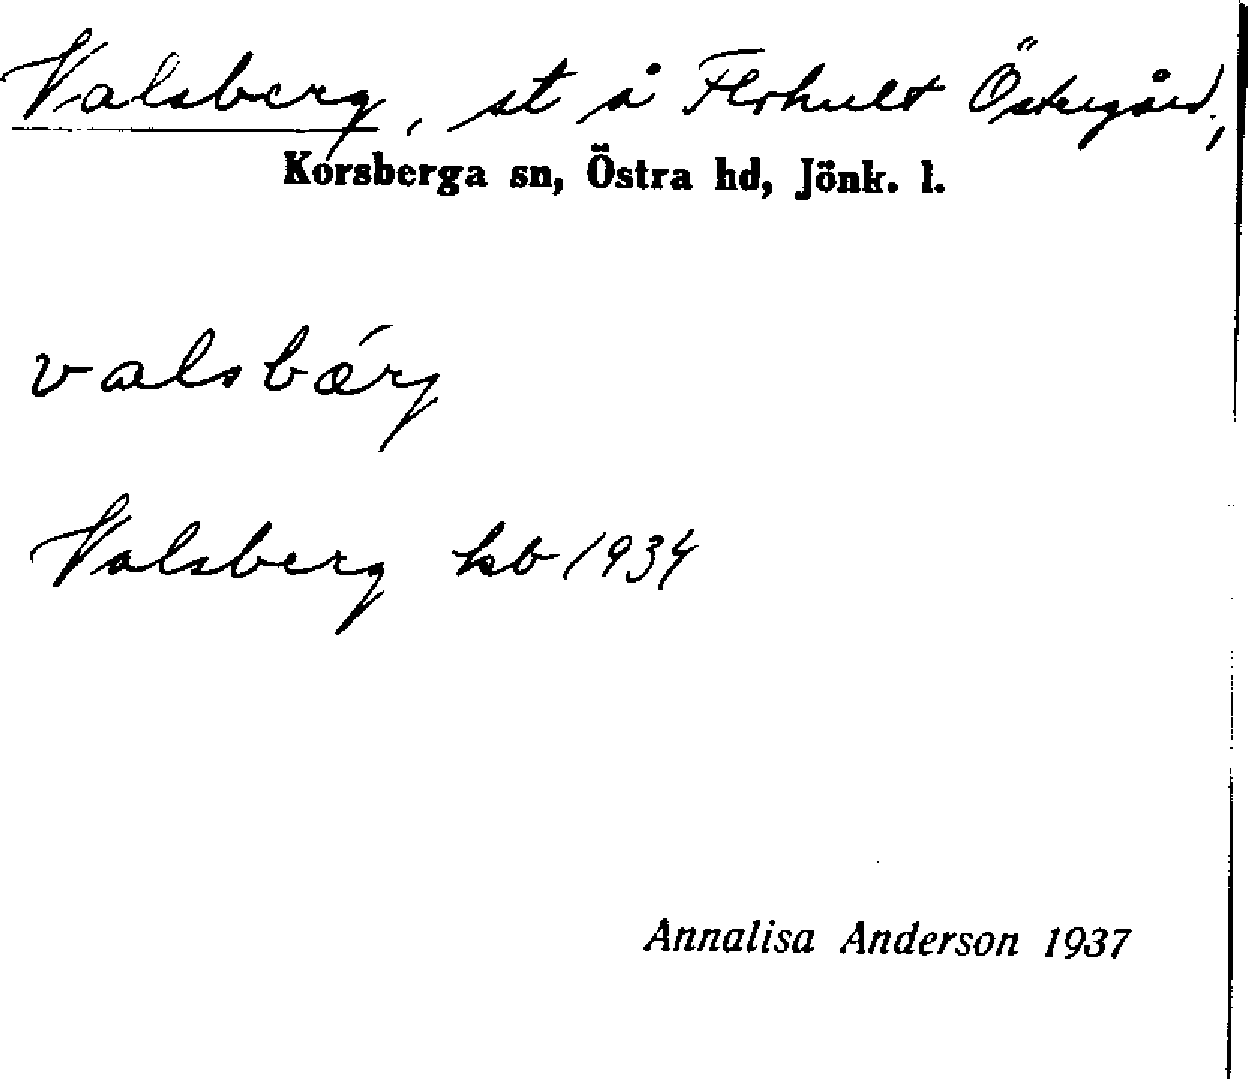 Valsberg, st å Flohult Östregård,
Korsberga sn, Östra hd, Jönk. l.
valsbárj
Valsberg kb 1934
Annalisa Anderson 1937